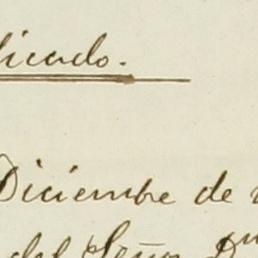 licado.
Diciembre de
del Señor D